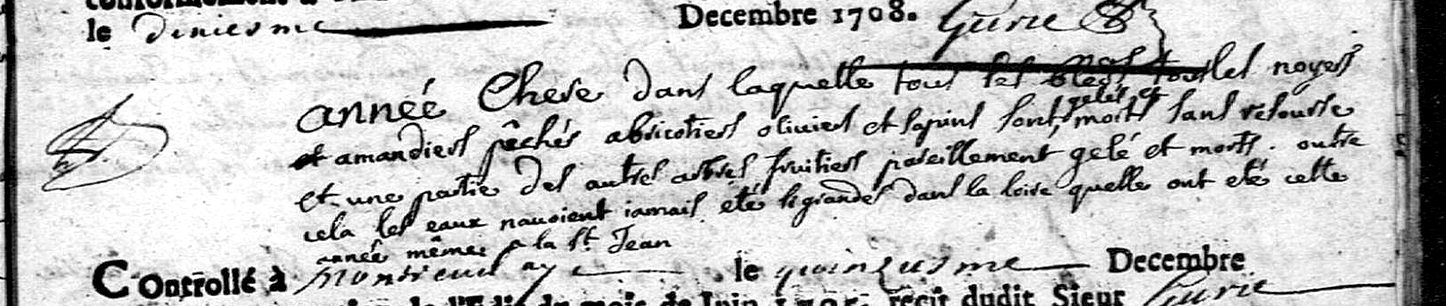 le deniesme Decembre 1708. Gurie
année Chere dans laquelle tous les bleds tous les noyers
et amandiers pêchés abricotiers oliviers et sapins sont gelés et morts sans resourse
et une partie des autres arbres fruitiers pareillement gelé et morts. outre
cela les eaux navoient iamais eté si grandes dans la loire quelle ont eté cette
année mêmes a la St Jean
COntrollé à Montreuil le quinzies me Decembre
de l'Edit du mois de Juin 1705. récit dudit Sieur Gurie